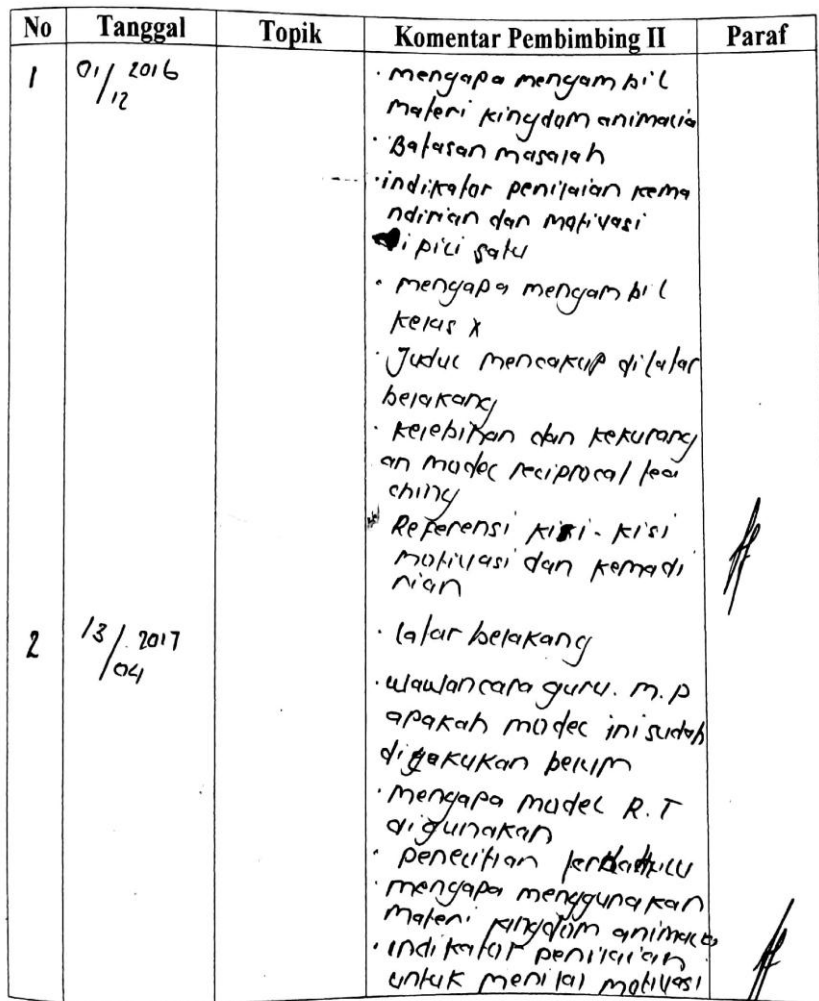 No Tanggal Topik Komentar Pembimbing II Paraf
1 01/12 2016 · mengapa mengambil
materi kingdom animalia
· Batasan masalah
· indikator penilaian kema
ndirian dan motivasi
di pili satu
· mengapa mengambil
kelas X
· Judul mencakup dilatar
belakang
· kelebihan dan kekurang
an model reciprocal tea
ching
· Referensi kisi-kisi
motivasi dan kemadi
rian
2 13/04 2017 · latar belakang
· wawancara guru. m.p
apakah model ini sudah
dilakukan belum
· mengapa model R.T
digunakan
· penelitian terdahulu
· mengapa menggunakan
materi kingdom animalia
· indikator penilaian
untuk menilai motivasi